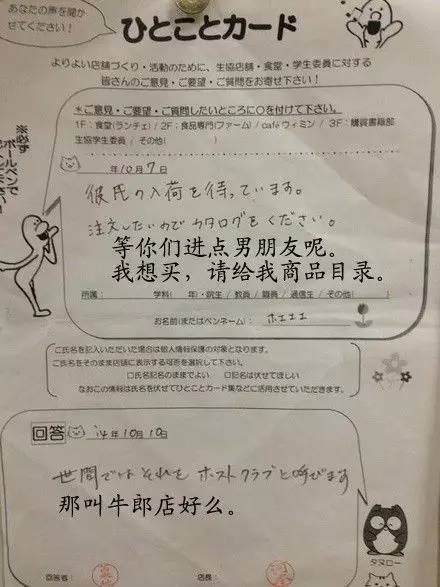 あなたの声を聞か
せてください！
ひとことカード
よりよい店舗づくり・活動のために、生協店舗・食堂・学生委員に対する
皆さんのご意見・ご要望・ご質問をお寄せ下さい！
※必ず
ボールペンで
＊ご意見・ご要望・ご質問したいところに○を付けて下さい。
1F：食堂(ランチェ) / 2F：食品専門(ファーム) / caféウィミン / 3F：購買書籍部
生協学生委員 / その他( )
年10月7日
彼氏の入荷を待っています。
注文したいのでカタログをください。
等你们进点男朋友呢。
我想买，请给我商品目录。
所属： 学科( 年)・院生 / 教員 / 職員 / 通信生 / その他( )
お名前(またはペンネーム)： ホエエエ
ご氏名を記入いただいた場合は個人情報保護の対象となります。
ご氏名をそのまま店舗に表示する可否を選択して下さい。
□氏名記名のままでよい □記名は伏せてほしい
なおこの情報は氏名を伏せてひとことカード集などに活用させていただきます。
回答
'14年10月10日
世間ではそれをホストクラブと呼びます
那叫牛郎店好么。
タヌロー
回答者：
店長：